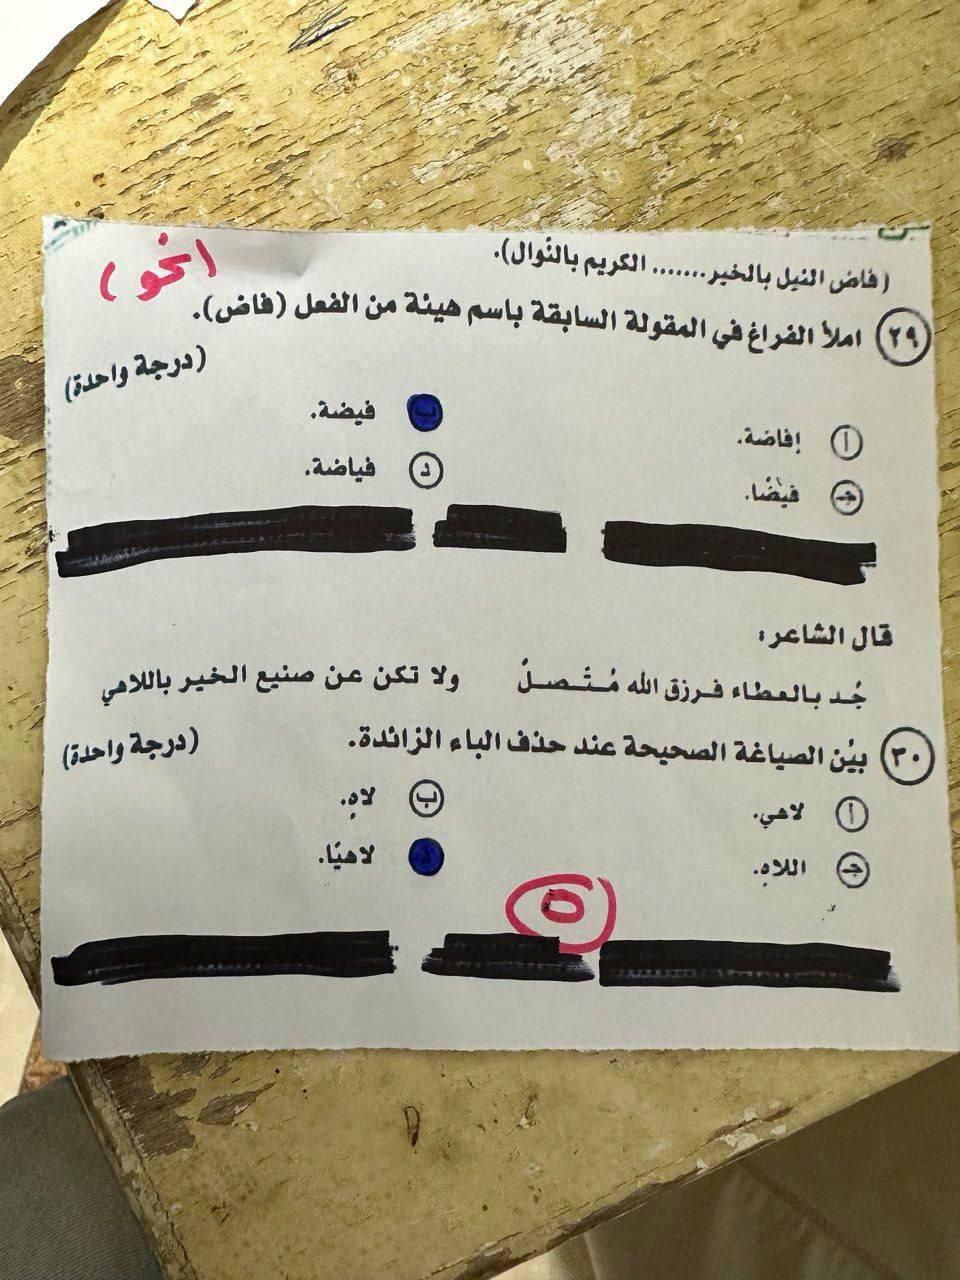 (نحو)
(فاض النيل بالخير....... الكريم بالنوال).
٢٩ املأ الفراغ في المقولة السابقة باسم هيئة من الفعل (فاض).
(درجة واحدة)
أ إفاضة.
ب فيضة.
جـ فيضًا.
د فياضة.
قال الشاعر:
جُد بالعطاء فرزق الله مُتَصلٌ ولا تكن عن صنيع الخير باللاهي
٣٠ بيّن الصياغة الصحيحة عند حذف الباء الزائدة.
(درجة واحدة)
أ لاهي.
ب لاهٍ.
جـ اللاهِ.
د لاهيًا.